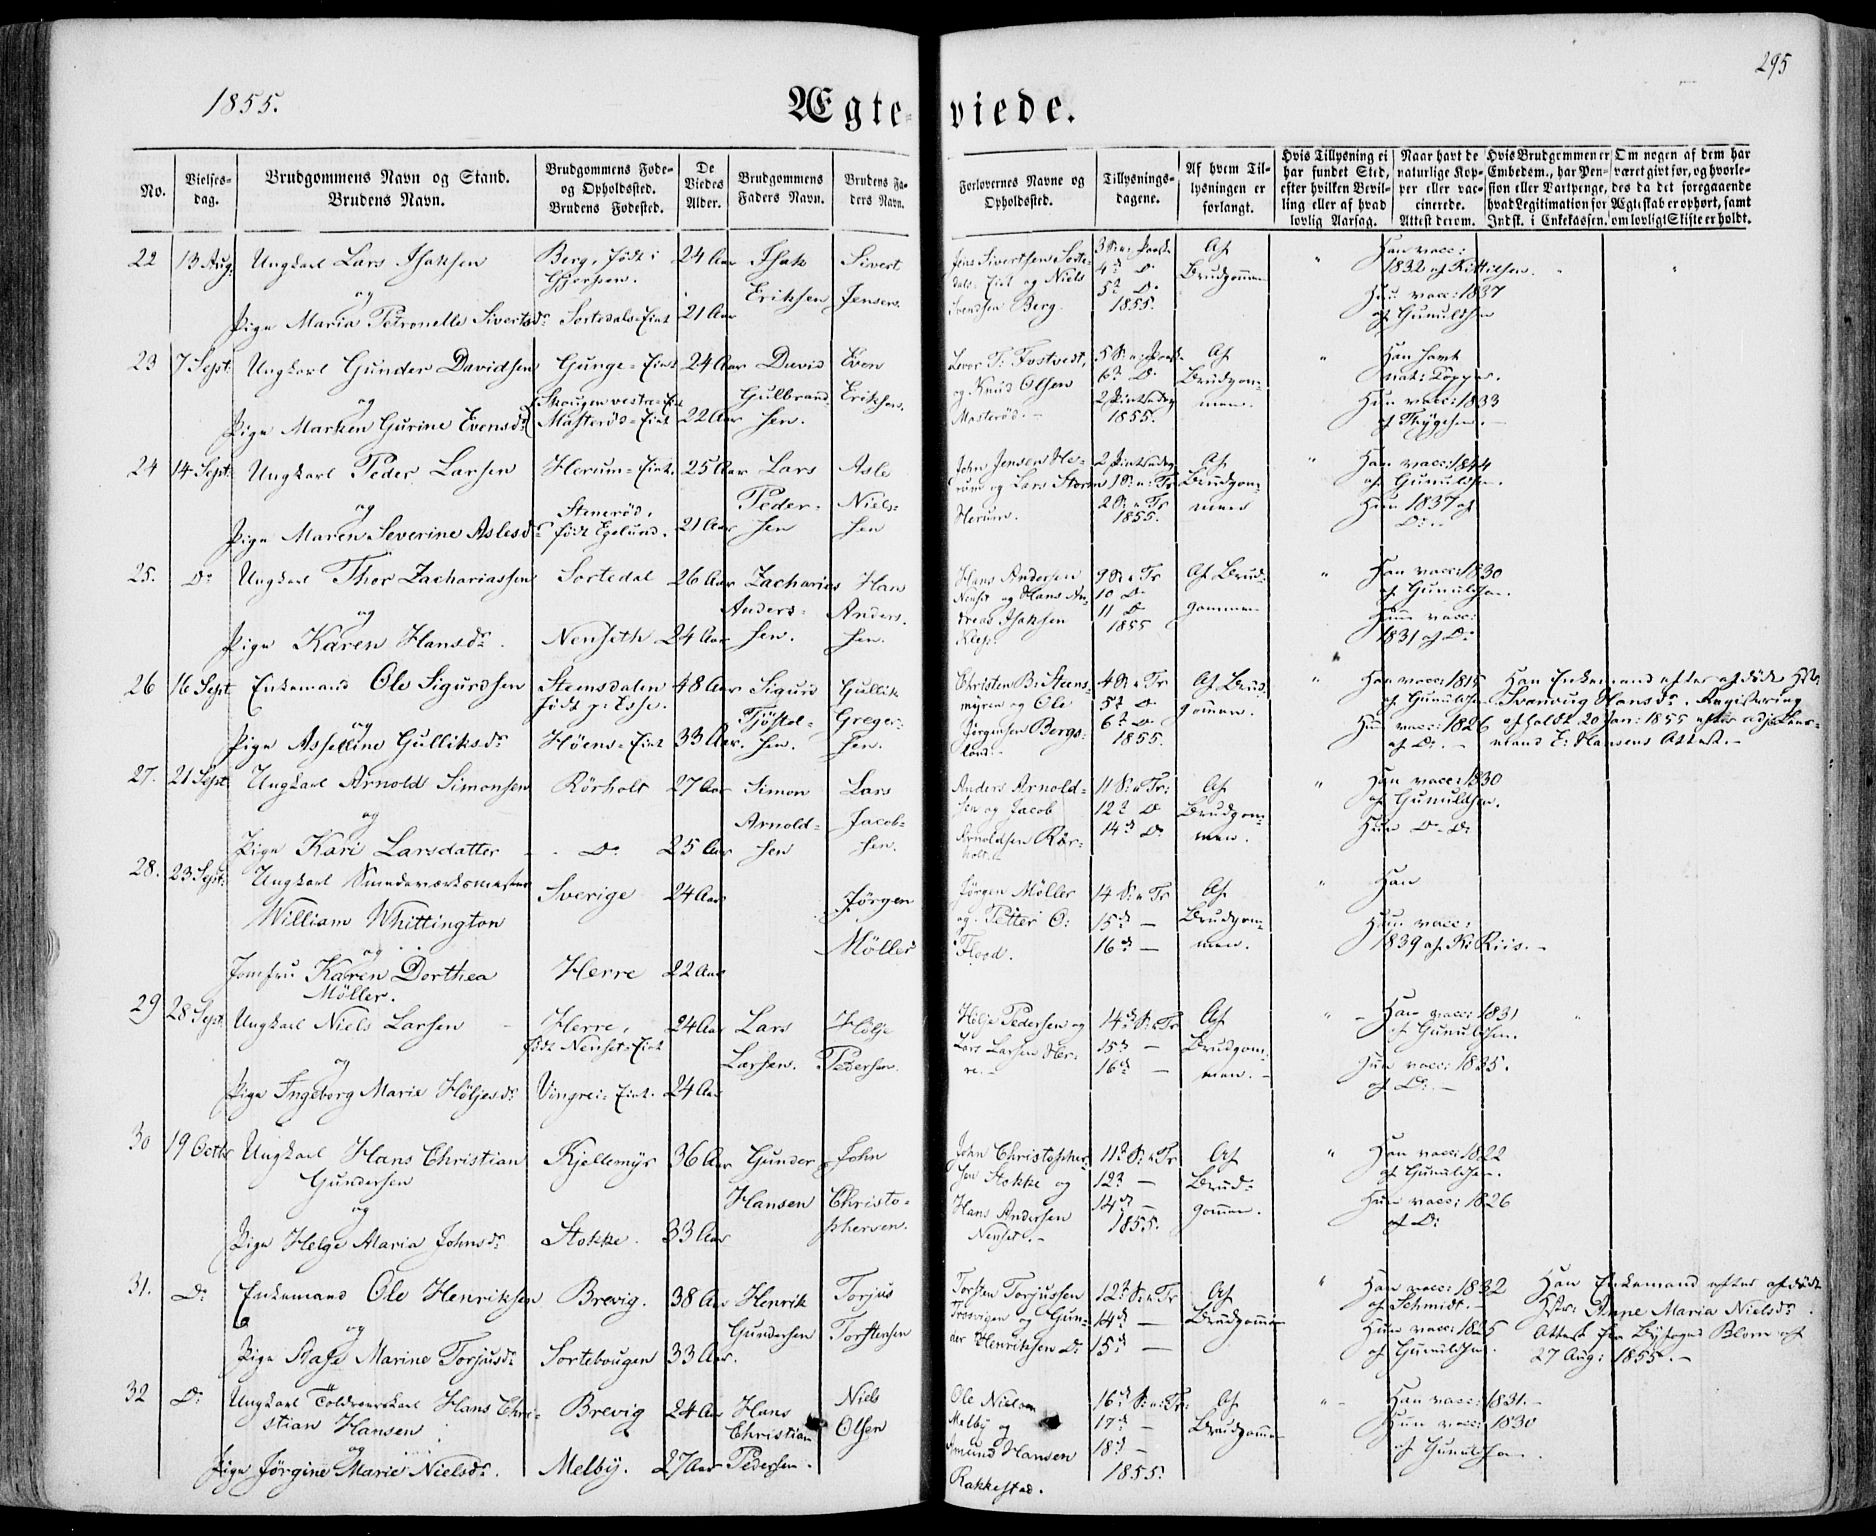 295
1855.
Ægte-viede.
No.
Vielses-
dag.
Brudgommens Navn og Stand.
Brudens Navn.
Brudgommens Føde-
og Opholdssted.
Brudens Fødested.
De
Viedes
Alder.
Brudgommens
Faders Navn.
Brudens Fa-
ders Navn.
Forlovernes Navne og
Opholdssted.
Tillysnings-
dagene.
Af hvem Til-
lysningen er
forlangt.
Hvis Tillysning ei
har fundet Sted,
efter hvilken Bevil-
ling eller af hvad
lovlig Aarsag.
Naar havt de
naturlige Kop-
per eller vac-
cinerede.
Attest derom.
Hvis Brudgommen er
Embedsm., har Pen-
sion eller Vartpenge,
hvad Legitimation for
Indsk. i Enkekassen.
Om nogen af dem har
været gift før, og hvorle-
des da det foregaaende
Ægteskab er ophørt, samt
om lovligt Skifte er holdt.
22 13 Aug: Ungkarl Lars Isaksen
og
Pige Maria Petronelle Sivertsdr
Berg, født i
Gjerpen.
Sortedals-Eiet
24 Aar
21 Aar
Isak
Eriksen
Sivert
Jensen.
Jens Sivertsen Sorte-
dals-Eiet og Niels
Svendsen Berg.
3 S. e. Paask
4de Do
5te Do
1855.
Af
Brudgommen
Han vacc:
1832 af Kittilsen.
Hun vacc: 1837
af Gunuldsen
23 7 Sept. Ungkarl Gunder Davidsen
og
Pige Marken Gurine Evensdr
Gunge-Eiet
Skougen vestre-Eiet
Masterød-Eiet
24 Aar
22 Aar
David
Gulbrand-
sen.
Even
Eriksen.
og Knud Olsen
Masterød.-
5 S. e. Paask
6te Do
2 Pintsedag
1855.
Af
Brudgom-
men.
Han havt
nat: Kopper.
Hun vacc: 1833
af Thygesen.-
24 14 Sept. Ungkarl Peder Larsen
og
Pige Maren Severine Aslesdr
Herum-Eiet.
Stenerød,
født Egelund.
25 Aar
21 Aar
Lars
Peder-
sen
Asle
Niels-
sen
John Jensen He-
rum og Lars Storm
Herum.
2 Pintsedag
1 S. e. Tr
2 S. e. Tr
1855.
Af
Brudgom-
men
Han vacc: 1844
af Gunuldsen.
Hun 1837 af
Do.-
25. Do Ungkarl Thor Zachariassen
og
Pige Karen Hansdr.
Sortedal
Nenseth
26 Aar
24 Aar
Zacharias
Anders-
sen.
Hans
Anders-
sen.
Hans Andersen
Nenset og Hans An-
dreas Isaksen
Klep.
9 S. e. Tr
10 Do
11 Do
1855
Af Brud-
gommen
Han vacc: 1830
af Gunuldsen.
Hun vacc:
1831 af Do
26 16 Sept. Enkemand Ole Sigurdsen
og
Pige Asseline Gulliksdr
Stensdalen
født p: Esse.
Høens-Eiet
48 Aar
33 Aar.
Sigurd
Tjøstol-
sen.
Gullik
Greger-
sen.
Christen B: Steens-
myren og Ole
Jørgensen Bergs-
land.-
4 S. e. Tr
5te Do
6te Do
1855.
Af Brud-
gommen.
Han vacc: 1815
af Gunuldsen
Hun vacc: 1826
af Do.-
Han Enkemand efter afdøde Hstr:
Svanaug Hansdr. Registrering
afholdt 20 Jan: 1855 efter Lens-
mand E: Hansens Attest.-
27. 21 Sept. Ungkarl Arnold Simonsen
og
Pige Kari Larsdatter
Rørholt
Do
27 Aar
25 Aar
Simon
Arnold-
sen
Lars
Jacob-
sen.
Anders Arnold-
sen og Jacob
Arnoldsen Rør-
holt.-
11 S. e. Tr:
12te Do
14de Do
Af
Brudgom-
men.
Han vacc: 1830
af Gunuldsen.
Hun Do Do
28. 23 Sept: Ungkarl
William Whittington
og
Jomfru Karen Dorthea
Møller.
Sverige
Herre
24 Aar
22 Aar
Jørgen
Møller
Jørgen Møller
og Petter O:
Flood.
14 S. e. Tr
15de -
16de -
Af
Brudgom-
men.
Han
Hun vacc:
1839 af Riis.-
29 28 Sept. Ungkarl Niels Larsen
og
Pige Ingeborg Marie Høljesdr
Herre,
født Nenset-Eiet
Eiet.
24 Aar
24 Aar
Lars
Larsen.
Hølje
Pedersen.
Hølje Pedersen og
Lars Larsen Her-
re.-
14de S. e. Tr
15de -
16de -
Af
Brudgom-
men.-
Han vacc: 1831
af Gunuldsen.
Hun vacc: 1835.
af Do.-
30 19 Octbr Ungkarl Hans Christian
Gundersen
og
Pige Helge Maria Johnsdr
Kjellemyr
Stokke.
36 Aar
33 Aar
Gunder
Hansen
John
Christo-
phersen.
John Christopher-
sen Stokke og
Hans Andersen
Nenset.-
11te S. e. Tr
12te -
14de -
1855.
Af
Brud-
gommen.
Han vacc: 1822
af Gunuldsen.
Hun vacc: 1826
af Do
31. Do Enkemand Ole Henriksen
og
Pige Marine Torjusdr
Brevig.
Sortebougen
38 Aar
33 Aar.
Henrik
Gundersen
Torjus
Torstensen
Torsten Torjussen
Trosvigen og Gun-
der Henriksen Do
12te S. e. Tr
14de -
15de -
Af
Brudgommen
Han vacc: 1832
af Schmidt.-
Hun vacc: 1825
af Gunuldsen.
Han Enkemand efter afdøde
Hstr: Anne Maria Nielsdr.
Attest fra Byfoged Blom af
27 Aug: 1855.-
32 Do Ungkarl Toldroerskarl Hans Chri-
stian Hansen
og
Pige Jørgine Marie Nielsdr.
Brevig
Melby.
24 Aar
27 Aar
Hans
Christian
Pedersen.
Niels
Olsen
Ole Nielsen
Melby og
Amund Hansen
Rakkestad.
16de S. e. Tr:
17de -
18de -
1855.
Af
Brudgommen
Han vacc: 1831.-
Hun vacc: 1830
af Gunuldsen.